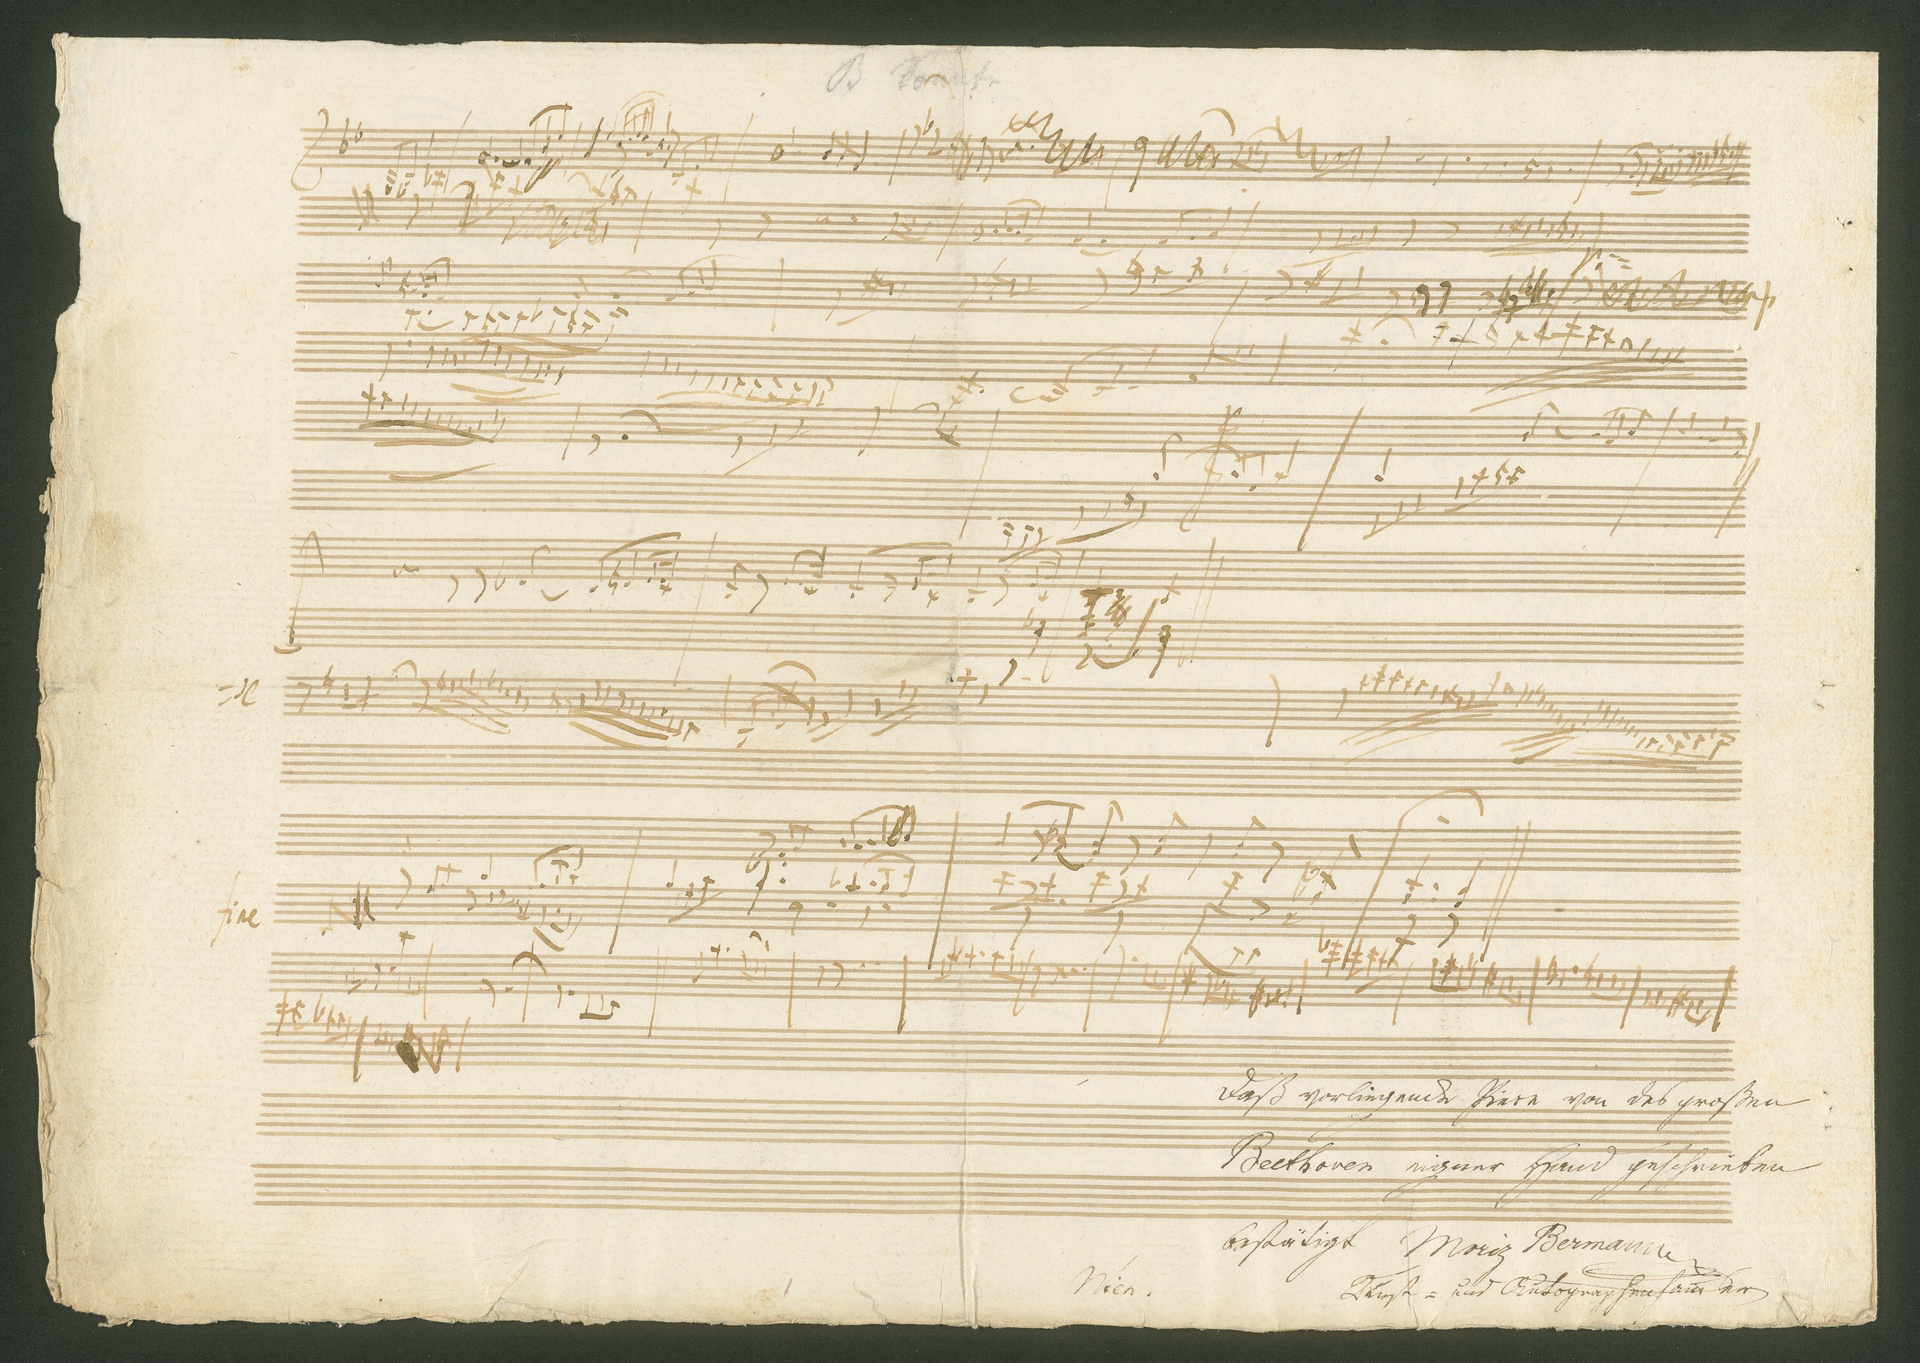 =de
fine
Daß vorliegende Piece von des großen
Beethoven eigner Hand geschrieben
bestätigt Moriz Bermann
Wien. Kunst = und Autographenhändler